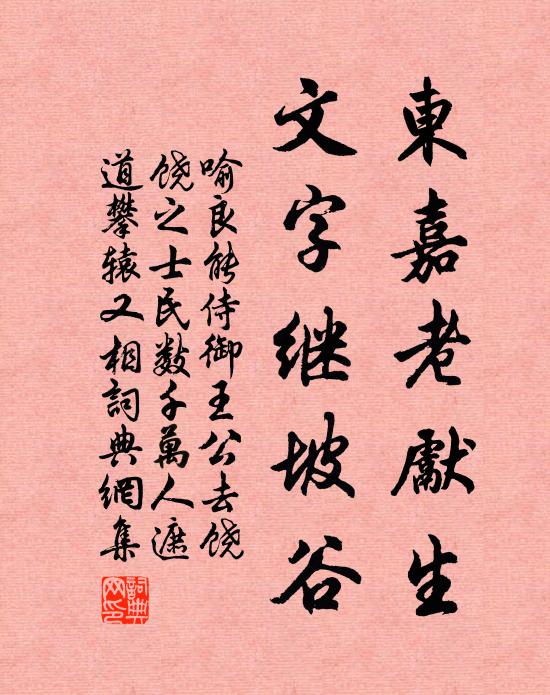 東嘉老獻生
文字继坡谷
喻良能侍御王公去饶
饶之士民数千萬人遮
道攀辕又相詞典網集
詞典网印